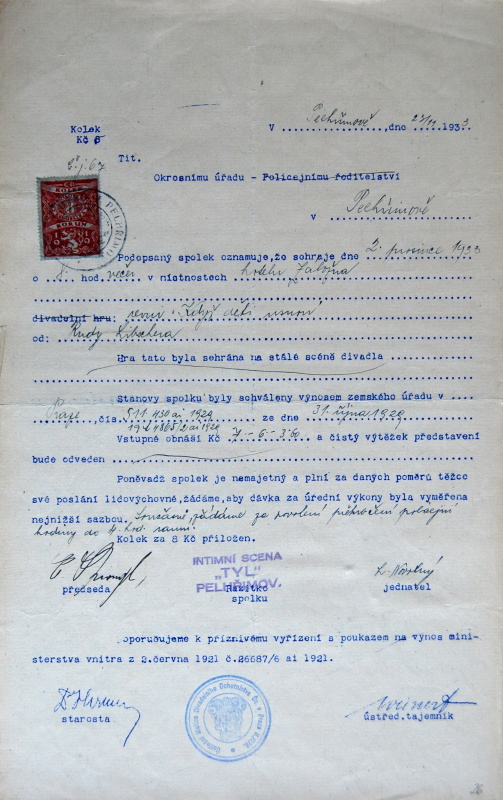 V Pelhřimově, dne 27/11 1933
Kolek
Kč 8
Č.j. 67
Tit.
Okresnímu úřadu - Policejnímu ředitelství
v Pelhřimově
Podepsaný spolek oznamuje, že sehraje dne 2. prosince 1933
o 8. hod. večer v místnostech hotelu Záložna
divadelní hru: revui: Když děti usnou
od: Rudy
Hra tato byla sehrána na stálé scéně divadla
Stanovy spolku byly schváleny výnosem zemského úřadu v
Praze, čís. 511.430 ai 1929 ze dne 31. října 1929
Vstupné obnáší Kč 7 - 6 - 3.60 a čistý výtěžek představení
bude odveden
Poněvadž spolek je nemajetný a plní za daných poměrů těžce
své poslání lidovýchovné, žádáme, aby dávka za úřední výkony byla vyměřena
nejnižší sazbou. Současně žádáme za povolení překročení policejní
hodiny do hod. ranní.
Kolek za 8 Kč přiložen.
INTIMNÍ SCENA
"TYL"
PELHŘIMOV.
předseda Razítko jednatel
spolku
L. Novotný
Doporučujeme k příznivému vyřízení s poukazem na výnos mini-
sterstva vnitra z 2.června 1921 č.26687/6 ai 1921.
starosta ústřed.tajemník
26